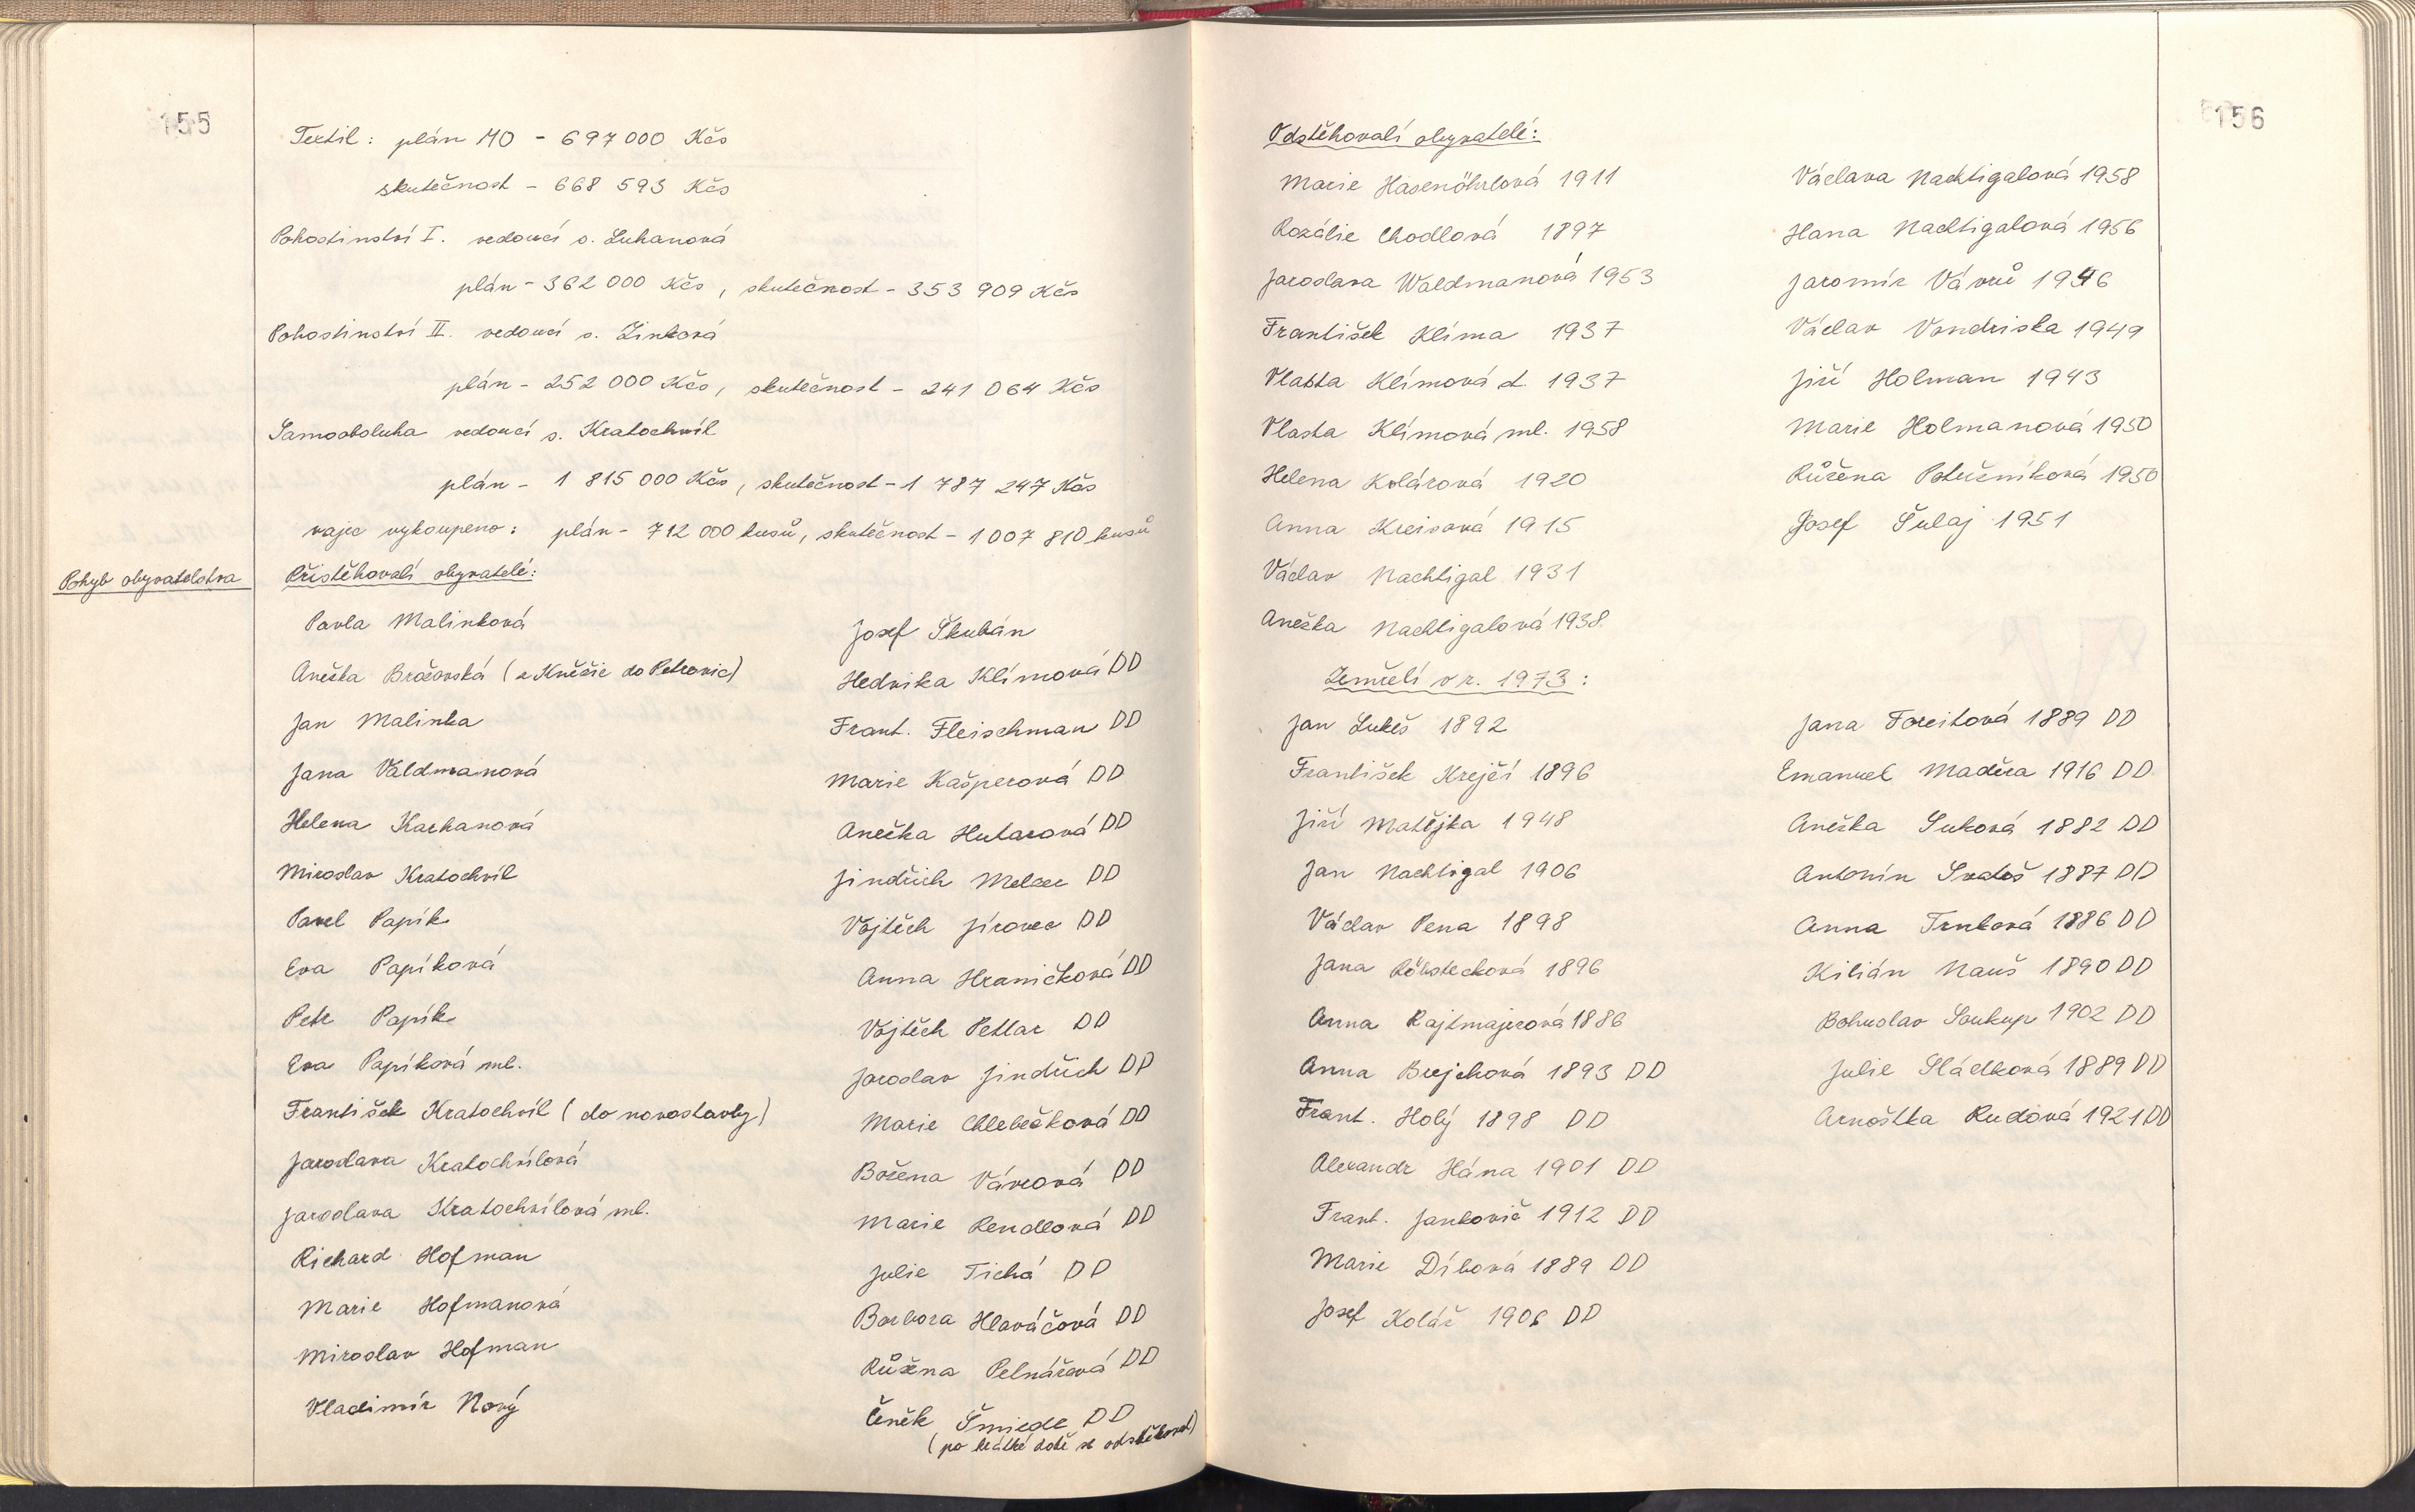 155
Textil: plán MO - 697 000 Kčs
skutečnost - 668 593 Kčs
Pohostinství I. vedoucí s. Luhanová
plán - 362 000 Kčs, skutečnost - 353 909 Kčs
Pohostinství II. vedoucí s. Zinková
plán - 252 000 Kčs, skutečnost - 241 064 Kčs
Samoobsluha vedoucí s. Kratochvíl
plán - 1 815 000 Kčs, skutečnost - 1 787 247 Kčs
vajec vykoupeno: plán - 712 000 kusů, skutečnost - 1 007 810 kusů
Pohyb obyvatelstva
Přistěhovalí obyvatelé:
Pavla Malinková
Anežka Brožovská (z Kněžic do Petrovic)
Jan Malinka
Jana Valdmanová
Helena Karhanová
Miroslav Kratochvíl
Pavel Papík
Eva Papíková
Petr Papík
Eva Papíková ml.
František Kratochvíl (do novostavby)
Jaroslava Kratochvílová
Jaroslava Kratochvílová ml.
Richard Hofman
Marie Hofmanová
Miroslav Hofman
Vladimír Nový
Josef Škubán
Hedvika Klímová DD
Frant. Fleischman DD
Marie Kašperová DD
Anežka Hutarová DD
Jindřich Melzer DD
Vojtěch Jírovec DD
Anna Hraničková DD
Vojtěch Petlar DD
Jaroslav Jindřich DD
Marie Chlebečková DD
Božena Vávrová DD
Marie Rendlová DD
Julie Tichá DD
Barbora Hlaváčová DD
Růžena Pelnářová DD
Čeněk Šmiedr DD
(po krátké době se odstěhoval)
156
Odstěhovalí obyvatelé:
Marie Hasenöhrlová 1911
Rozálie Chodlová 1897
Jaroslava Waldmanová 1953
František Klíma 1937
Vlasta Klímová st. 1937
Vlasta Klímová ml. 1958
Helena Kolářová 1920
Anna Kreisová 1915
Václav Nachtigal 1931
Anežka Nachtigalová 1938
Václava Nachtigalová 1958
Hana Nachtigalová 1956
Jaromír Vávrů 1946
Václav Vondriska 1949
Jiří Holman 1943
Marie Holmanová 1950
Růžena Potužníková 1950
Josef Šulaj 1951
Zemřelí v r. 1973:
Jan Lukeš 1892
František Krejčí 1896
Jiří Matějka 1948
Jan Nachtigal 1906
Václav Pena 1898
Jana Röbstecková 1896
Anna Rajtmajerová 1886
Anna Brejchová 1893 DD
Frant. Holý 1898 DD
Alexandr Hána 1901 DD
Frant. Jankovič 1912 DD
Marie Díbová 1889 DD
Josef Kolář 1906 DD
Jana Foreitová 1889 DD
Emanuel Maděra 1916 DD
Anežka Suková 1882 DD
Antonín Svatoš 1887 DD
Anna Trnková 1886 DD
Kilián Nauš 1890 DD
Bohuslav Soukup 1902 DD
Julie Sládková 1889 DD
Arnoštka Rudová 1921 DD